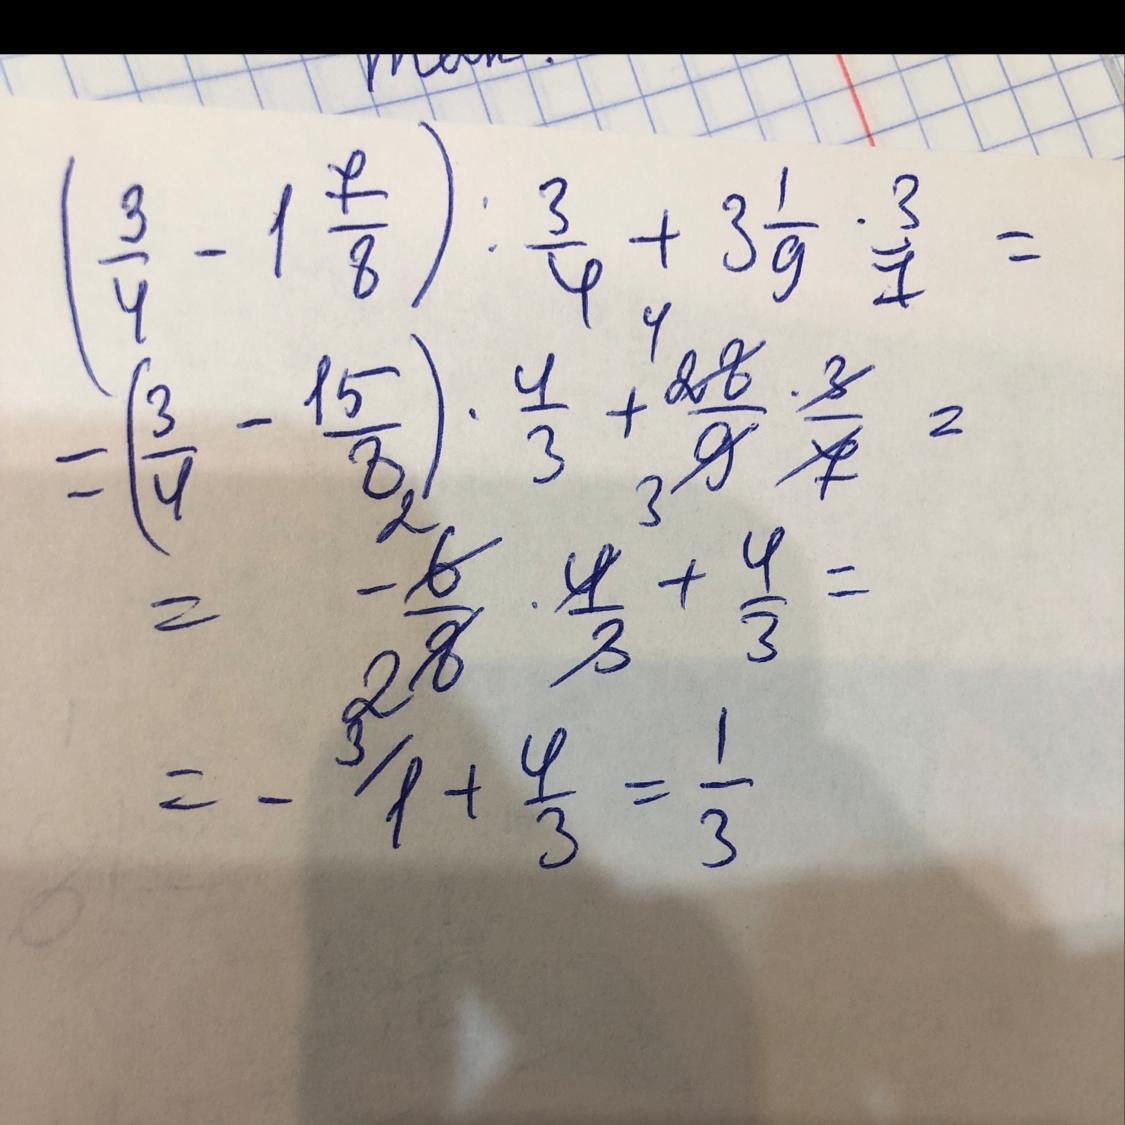 (3/4 - 1 7/8) : 3/4 + 3 1/9 · 3/7 =
= (3/4 - 15/8) · 4/3 + 28/9 · 3/7 = 4 3
= - 6/8 · 4/3 + 4/3 = 2 2
= - 3/1 + 4/3 = 1/3